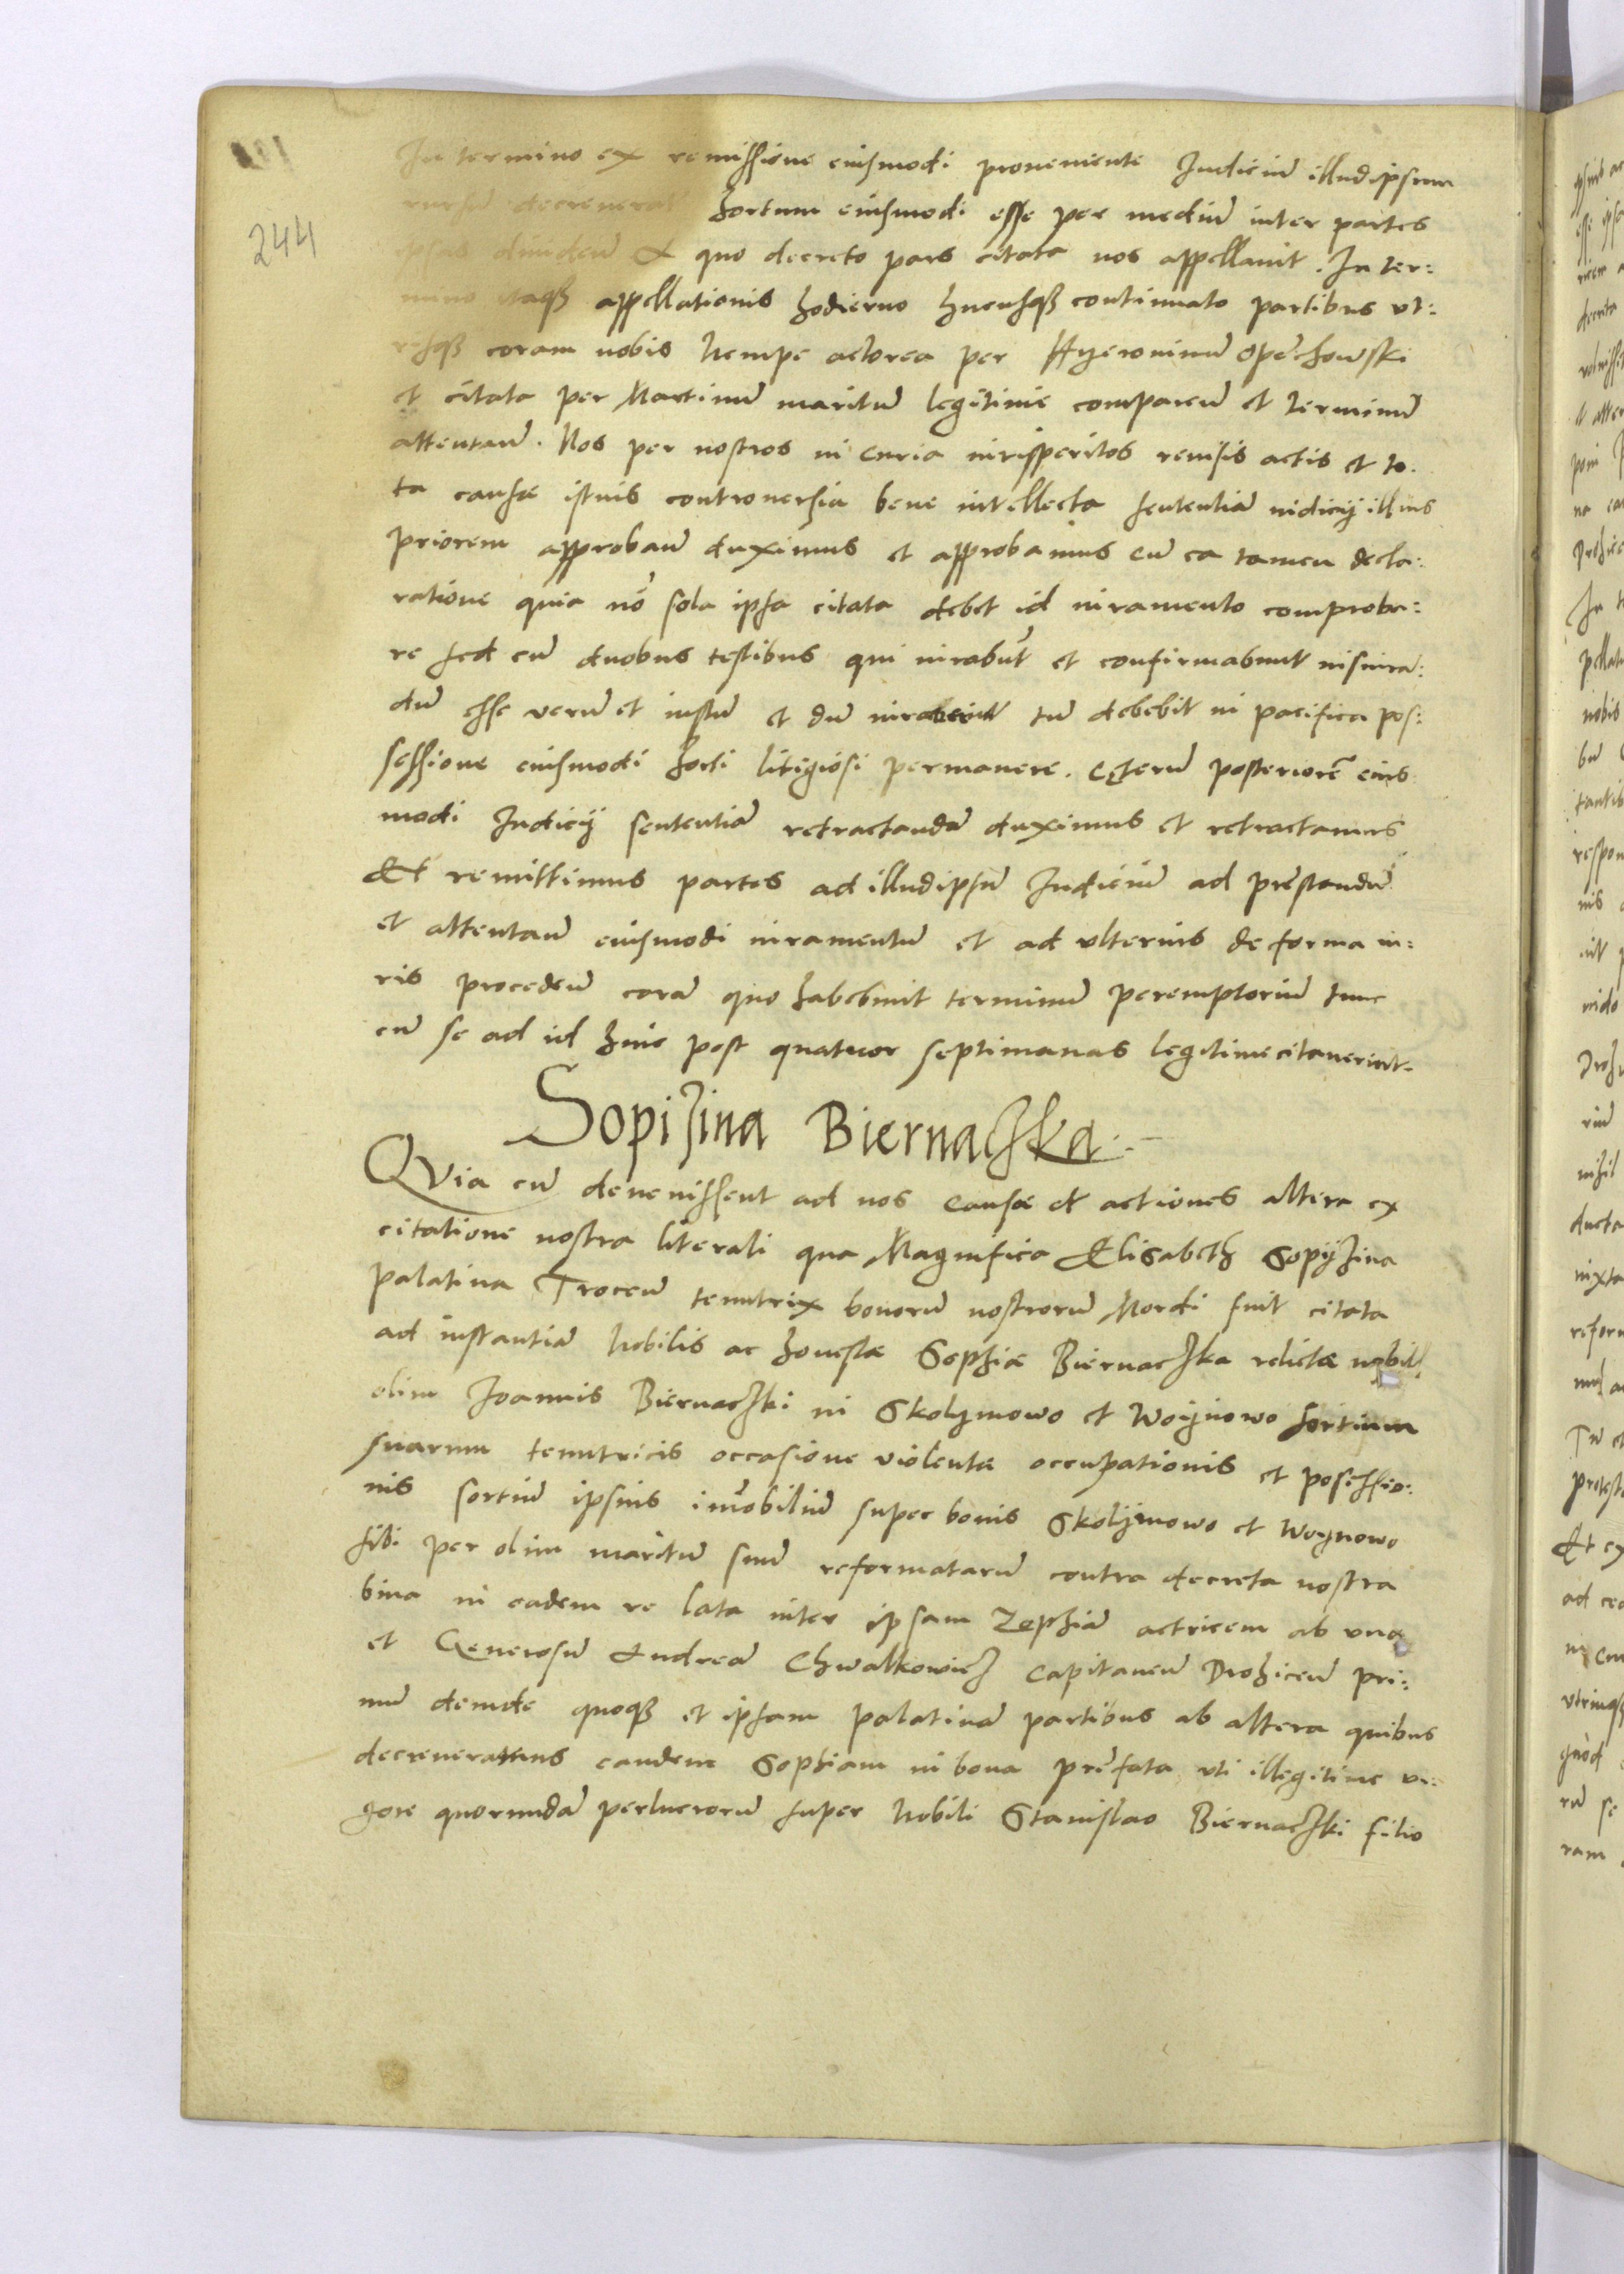 244
In termino ex remissione eiusmodi proveniente Iudiciũ illudipsum
rursũ decreverat sortem eiusmodi esse per mediũ inter partes
ipsas dividenũ A quo decreto pars citata nos appellavit. In ter:
mino itaq₃ appellationis hodierno hucusq₃ continuato partibus ut:
risq₃ coram nobis Nempe actorea per Hyeronimũ Opechowski
et citata per Martinũ maritũ legitime comparenũ et terminũ
attentanũ. Nos per nostros in curia iurisperitos revisis actis et to:
ta causæ istius controversia bene intellecta sententiã iudicÿ illius
priorem approbanũ duximus et approbamus cũ ea tamen decla:
ratione quia nõ sola ipsa citata debet id iuramento comproba:
re sed cũ duobus testibus qui iurabũt et confirmabunt iusiura:
dũ esse verũ et iustũ et dũ iuraverint tũ debebit in pacifica pos:
sessione eiusmodi sorti litigiosi permanere. Cęterũ posteriorẽ eius
modi Iudicÿ sententiã retractandã duximus et retractamus
Et remissimus partes ad illudipsũ Iudiciũ ad prestandũ
et attentanũ eiusmodi iuramentũ et ad ulterius de forma iu:
ris procedenũ corã quo habebunt terminũ peremptoriũ tunc
cũ se ad id hinc post quatuor septimanas legitime citaverint.
Sopiʒina Biernaczka
Quia cũ devenissent ad nos causæ et actiones altera ex
citatione nostra literali qua Magnifica Elisabeth Sopÿʒina
palatina Trocenũ tenutrix bonorũ nostrorũ Mordi fuit citata
ad instantiã Nobilis ac honestæ Sophiæ Biernaczka relictæ nobil
olim Joannis Biernaczki in Skolymowo et Woynowo sortium
suarum tenutricis occasione violentæ occupationis et possessio:
nis sortiũ ipsius imobiliũ super bonis Skolymowo et Woynowo
sibi per olim maritũ suũ reformatarũ contra decreta nostra
bina in eadem re lata inter ipsam Zophiã actricem ab una
et Generosũ Andreã Chwalkowicz Capitaneũ Drohicenũ pri:
mũ deinde quoq₃ et ipsam palatinã partibus ab altera quibus
decreveramus eandem Sophiam in bona prefata uti illegitime vi:
gore quorundã perlucrorũ super Nobili Stanislao Biernaczki filio